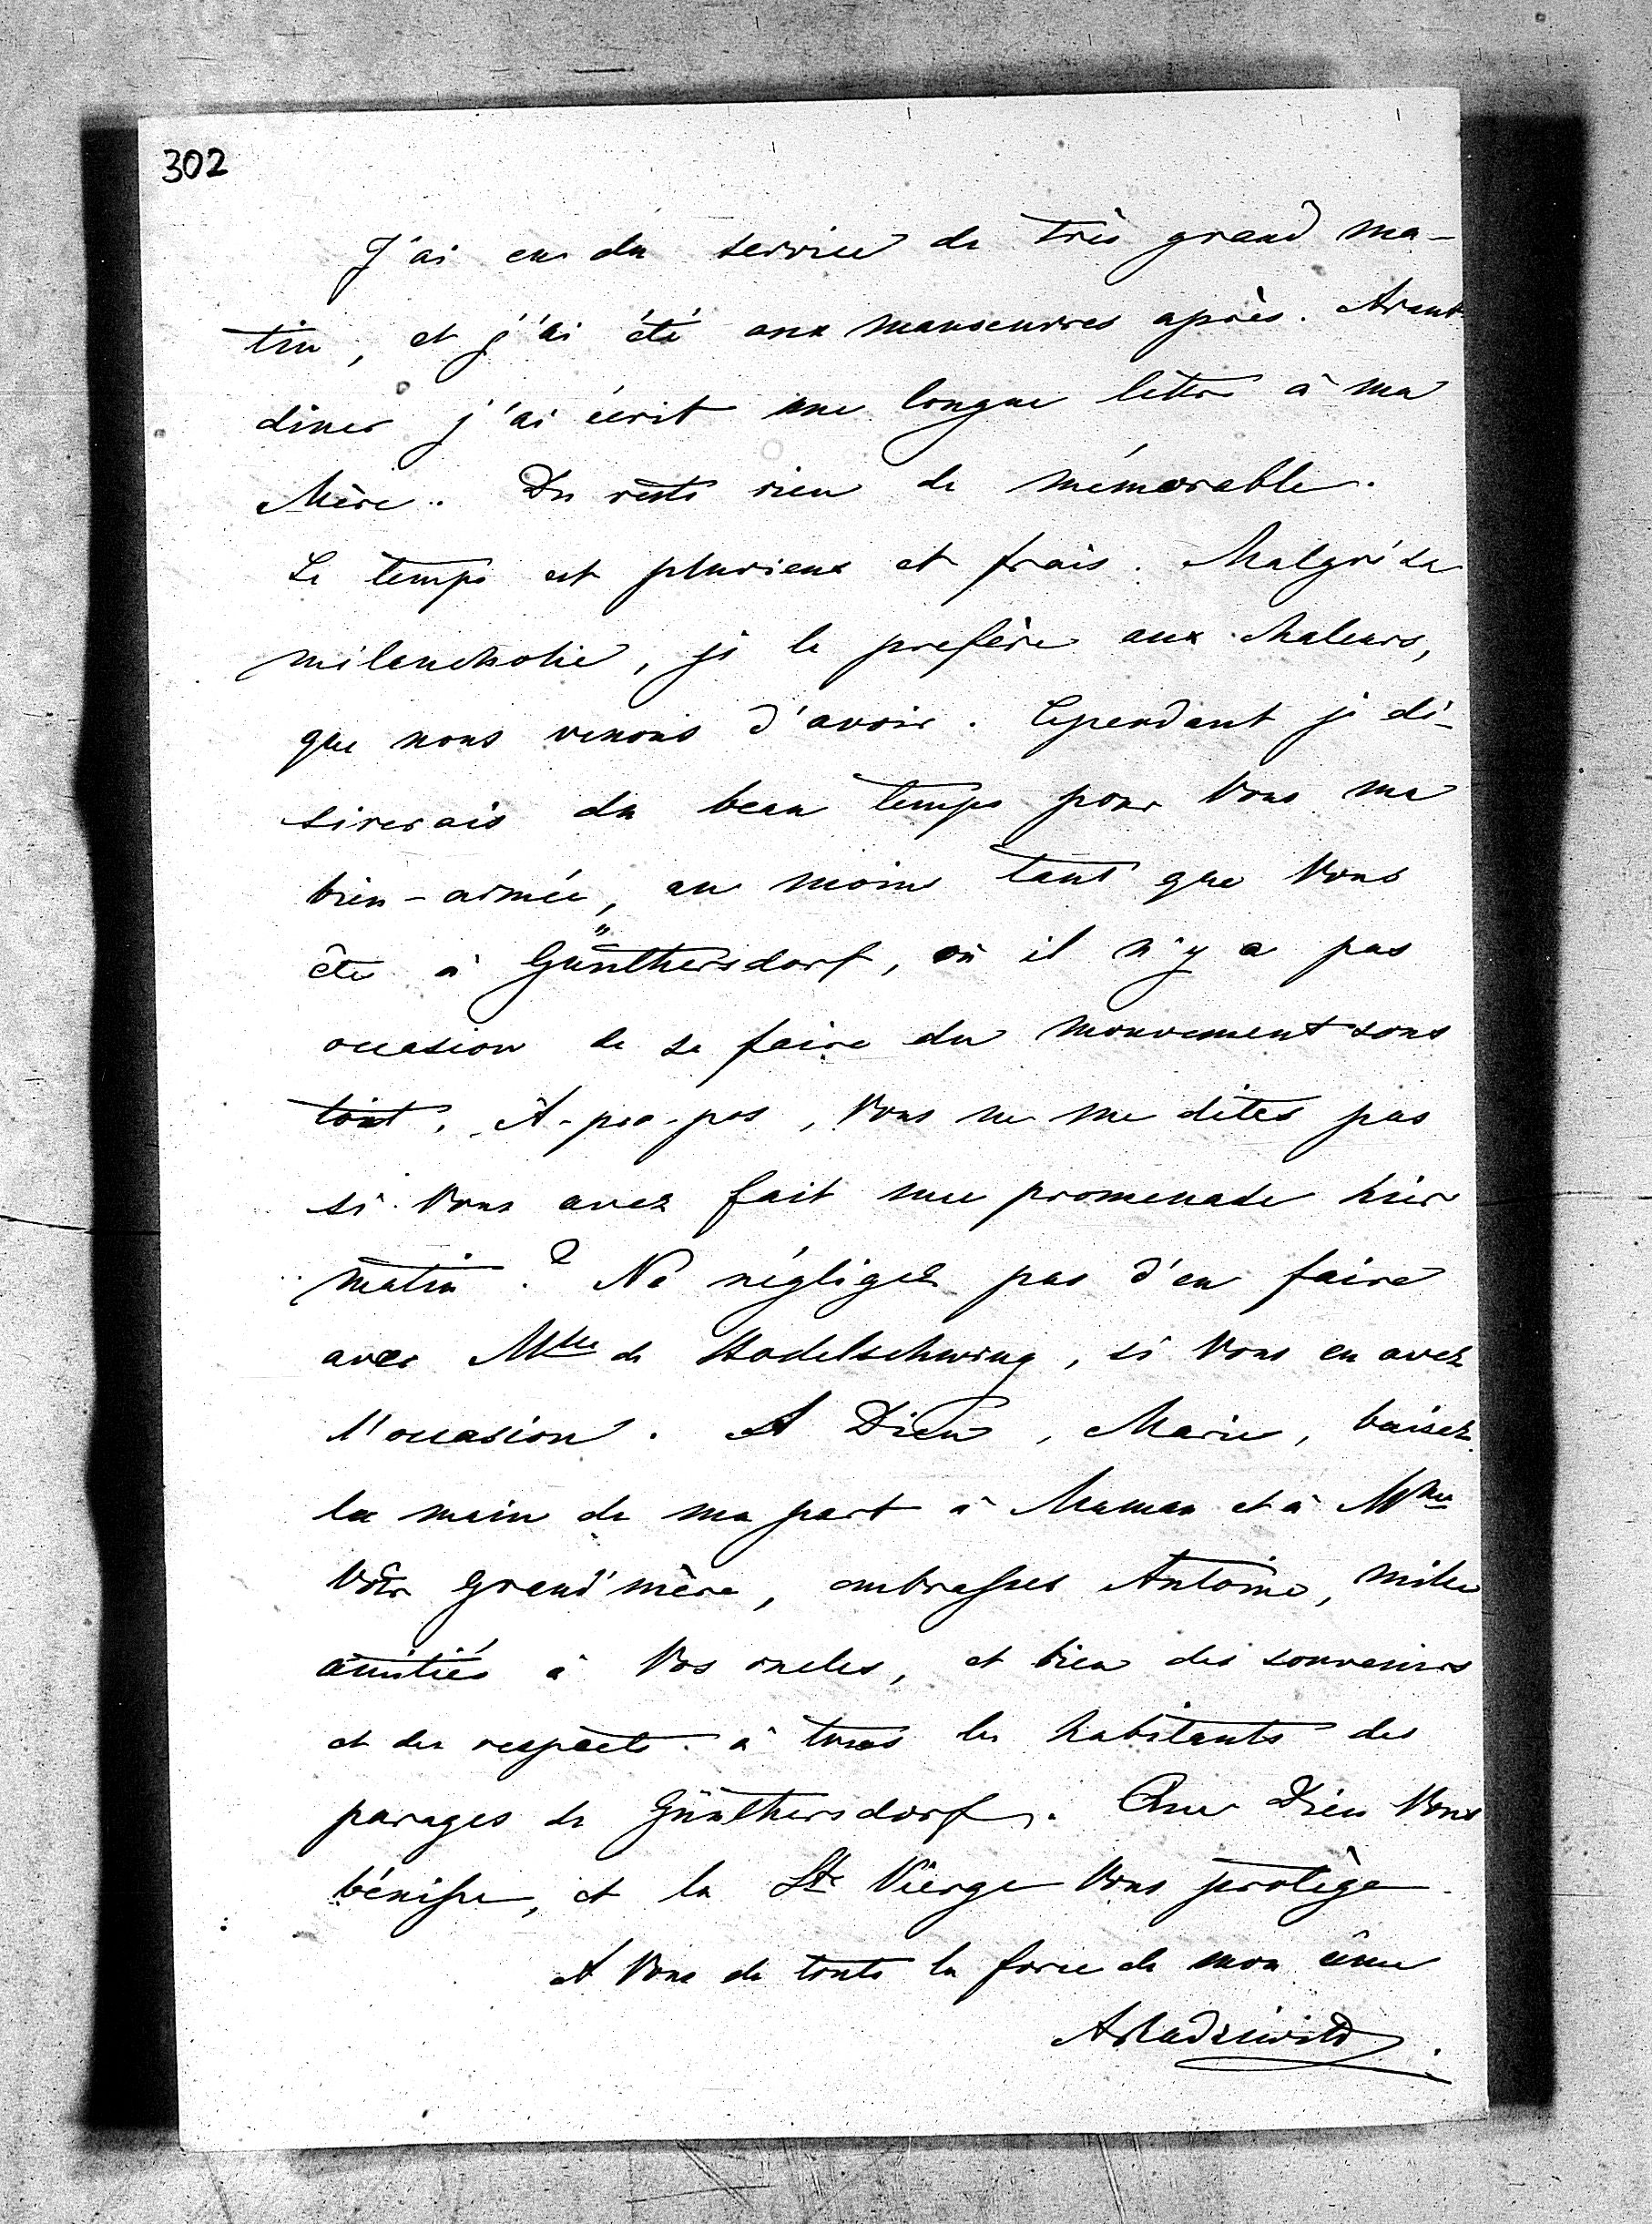 302
J'ai eu du service de très grand ma-
tin, et j'ai été aux manoeuvres après. Avant
diner j'ai écrit une longue lettre à ma
Mère. Du reste rien de mémorable.
Le temps est pluvieux et frais. Malgré sa
mélancholie, je le prefère aux chaleurs,
que nous venons d'avoir. Cependant je dé-
sirerais du beau temps pour Vous ma
bien-aimée, au moins tant que Vous
ête à Günthersdorf, où il n'y a pas
occasion de se faire du mouvement sous
toit. A-pro-pos, Vous ne me dites pas
si Vous avez fait une promenade hier
matin? Ne négligez pas d'en faire
avec Mlle de Bodelschwing, si Vous en avez
l'occasion. A Dieu, Marie, baisez
la main de ma part à Maman et à Mme
Votr Grand'mère, embrasses Antoine, mille
amitiés à Vos oncles, et bien des souvenirs
et des respects à tous les habitants des
parages de Günthersdorf. Que Dieu Vous
bénisse, et la Ste Vierge Vous protège.
A Vous de toute la force de mon âme
ARadziwill.